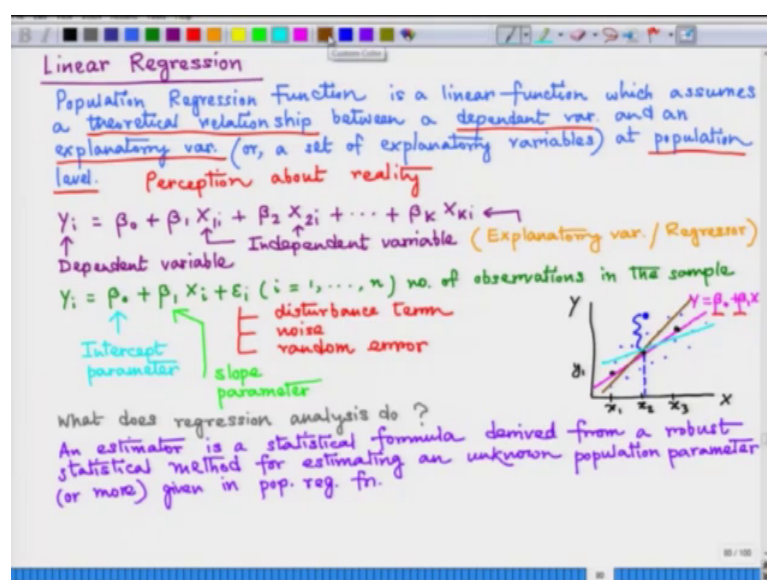 Custom Color
Linear Regression
Population Regression Function is a linear function which assumes
a theoretical relationship between a dependent var. and an
explanatory var. (or, a set of explanatory variables) at population
level. Perception about reality
Yi = β0 + β1 X1i + β2 X2i + ··· + βK XKi
Independent variable (Explanatory var. / Regressor)
Dependent variable
Yi = β0 + β1 Xi + εi (i = 1, ..., n) no. of observations in the sample
disturbance term
noise
random error
Intercept
parameter
slope
parameter
Y
Y = β0 + β1X
y1
x1 x2 x3 X
What does regression analysis do ?
An estimator is a statistical formula derived from a robust
statistical method for estimating an unknown population parameter
(or more) given in pop. reg. fn.
80 / 100
80